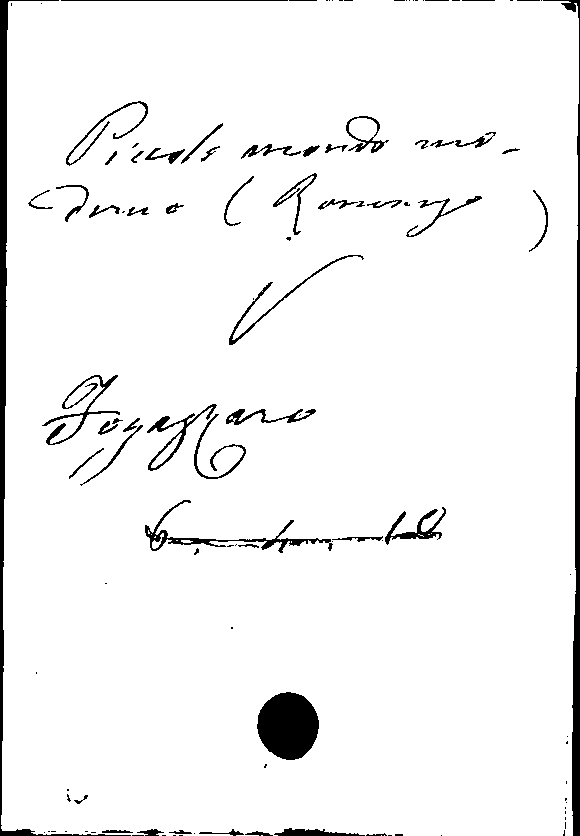 Piccolo mondo mo-
derno (Romanzo)
V
Fogazzaro
6. 4. 10